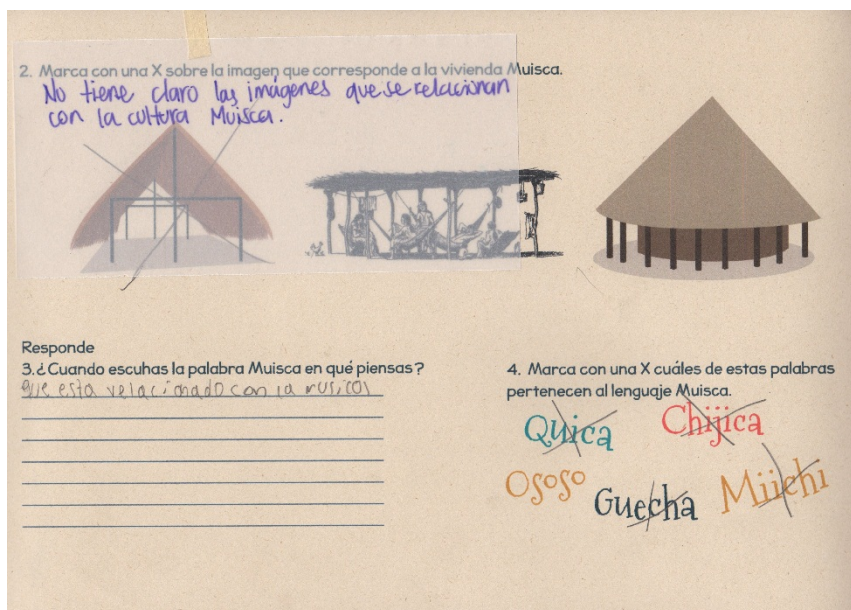 2. Marca con una X sobre la imagen que corresponde a la vivienda Muisca.
No tiene claro las imágenes que se relacionan
con la cultura Muisca.
Responde
3.¿Cuando escuhas la palabra Muisca en qué piensas?
que esta relacionado con la musica
4. Marca con una X cuáles de estas palabras
pertenecen al lenguaje Muisca.
Quica Chijica
Ososo Guecha Miichi